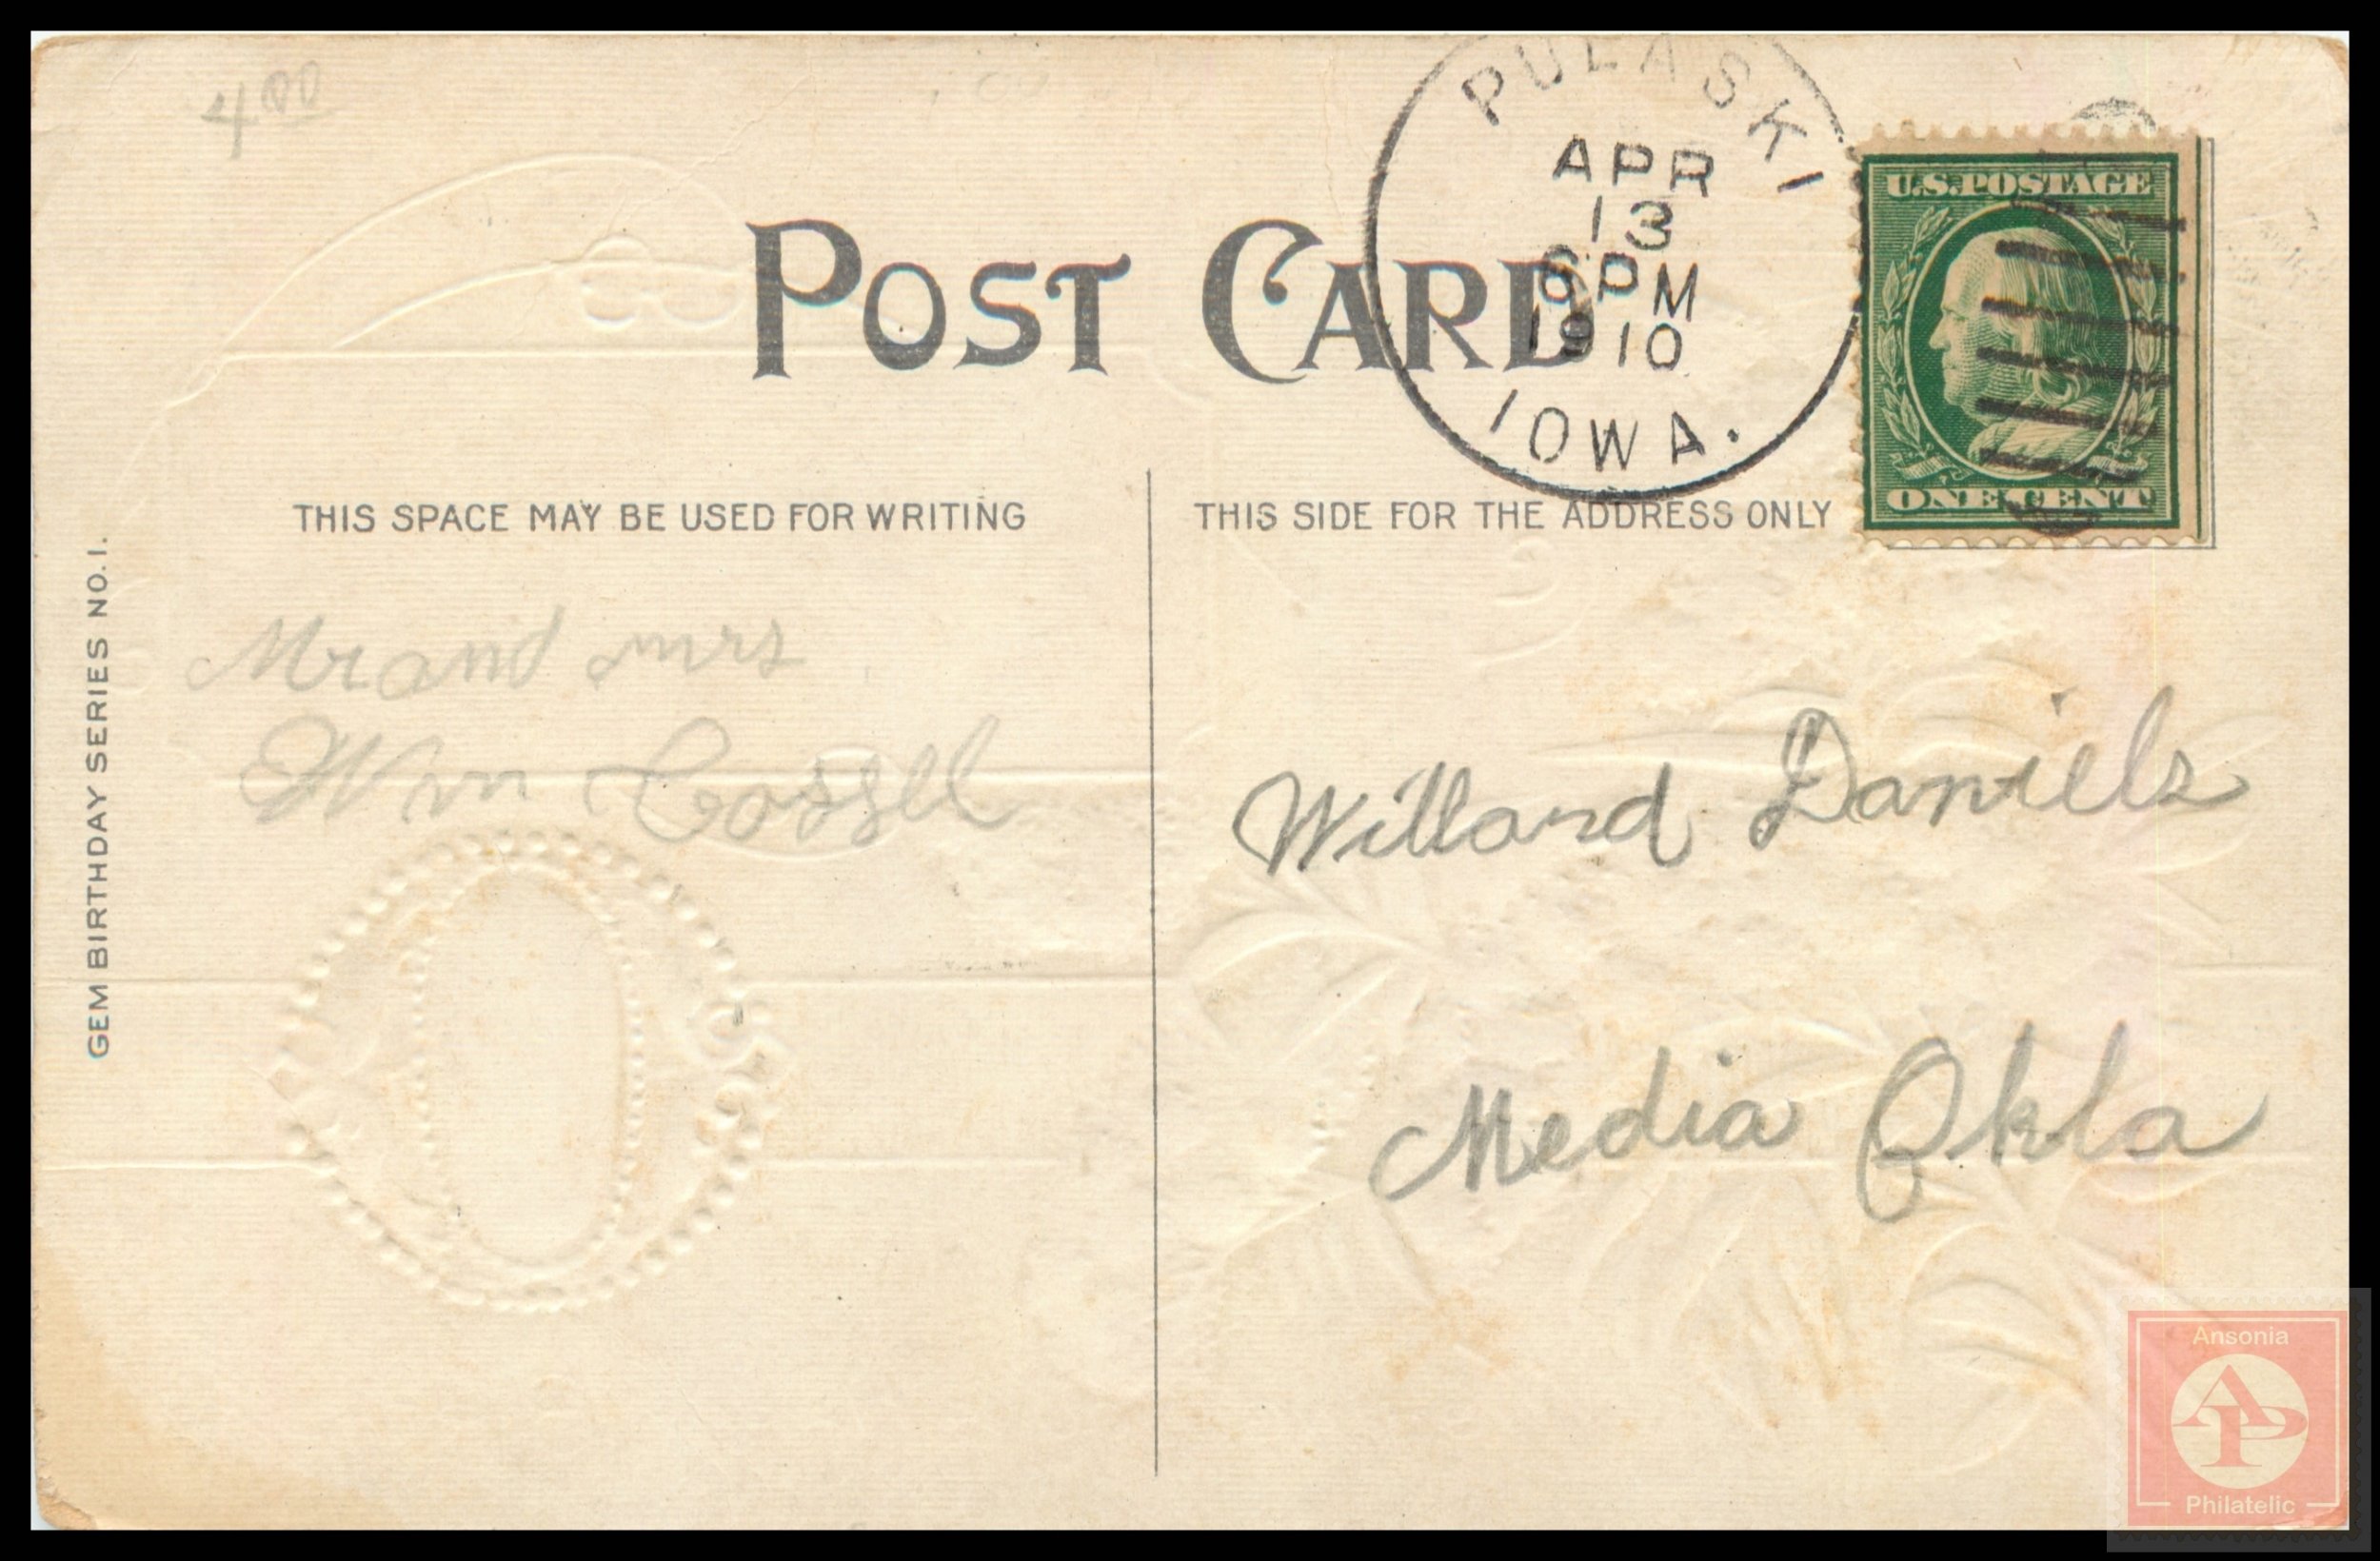 4 00
POST CARD
PULASKI
APR
13
6 PM
1910
IOWA.
U.S. POSTAGE
ONE CENT
THIS SPACE MAY BE USED FOR WRITING
THIS SIDE FOR THE ADDRESS ONLY
GEM BIRTHDAY SERIES NO. 1.
Mr and mrs
Wm Cossel
Willard Daniels
Media Okla
Ansonia
AP
Philatelic